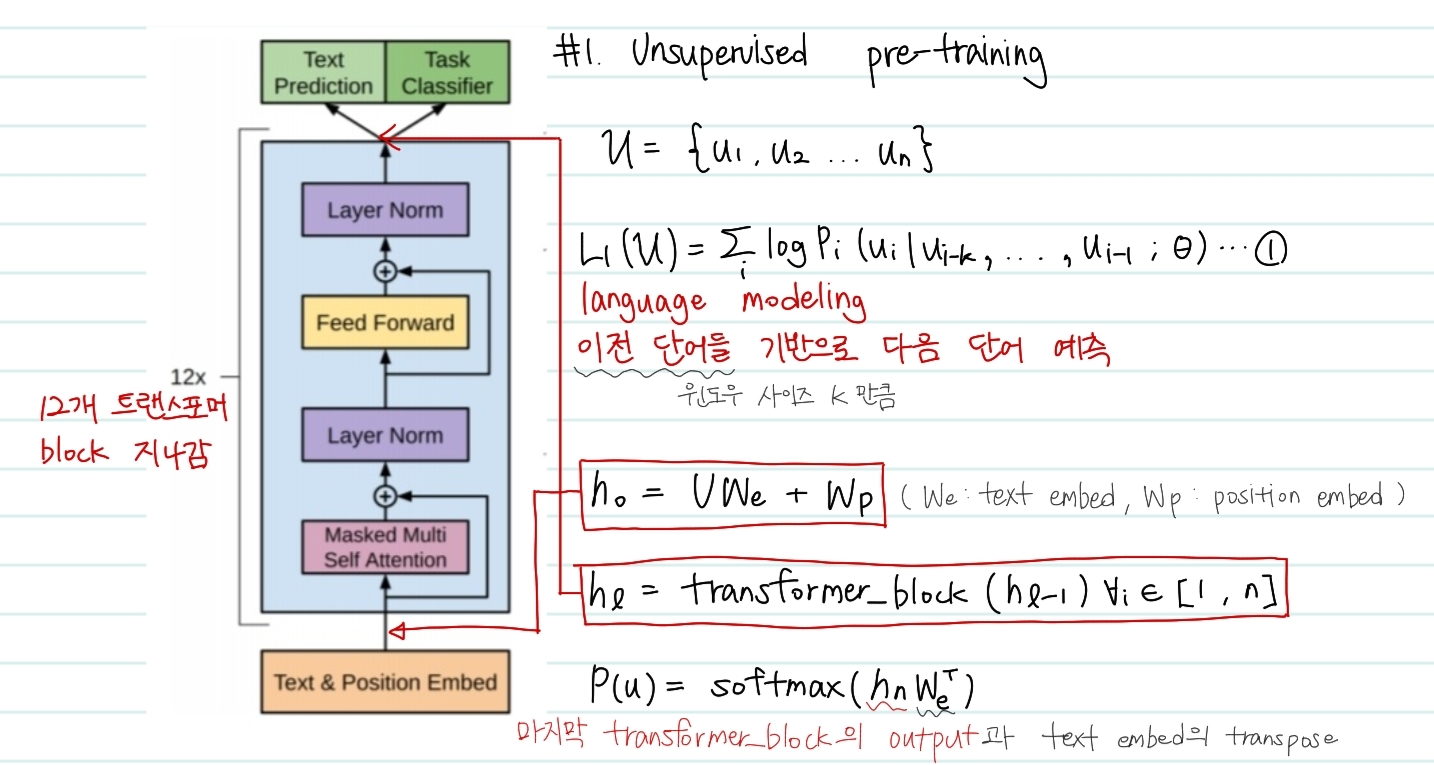 Text Prediction
Task Classifier
Layer Norm
Feed Forward
Layer Norm
Masked Multi Self Attention
Text & Position Embed
12x
12개 트랜스포머
block 지나감
#1. Unsupervised pre-training
U = {u1, u2 ... un}
L1(U) = Σi log Pi (ui | ui-k, ..., ui-1 ; θ) ... ①
language modeling
이전 단어들 기반으로 다음 단어 예측
윈도우 사이즈 k 만큼
h0 = UWe + Wp ( We : text embed, Wp : position embed )
hl = transformer_block (hl-1) ∀i ∈ [1, n]
P(u) = softmax(hn We^T)
마지막 transformer_block의 output과 text embed의 transpose